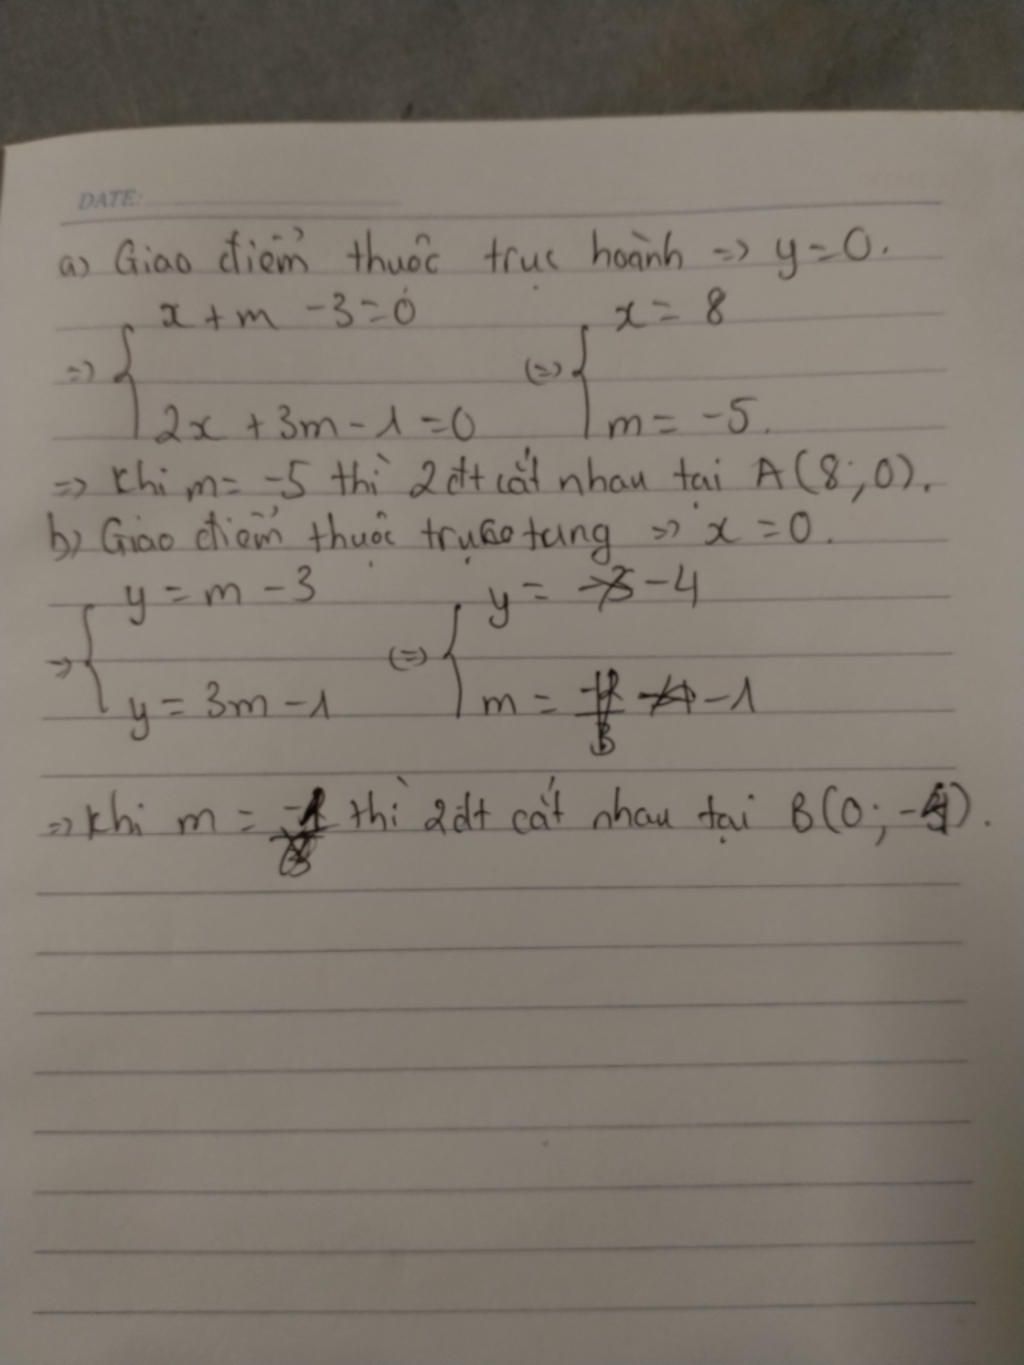 DATE:
a) Giao điểm thuộc trục hoành => y=0.
x+m-3=0
x=8
=>
(=>
2x+3m-1=0
m=-5.
=> Khi m=-5 thì 2đt cắt nhau tại A(8;0).
b) Giao điểm thuộc trục tung => x=0.
y=m-3
y= -4
=>
(=>
y=3m-1
m= -1
=> Khi m = -1 thì 2đt cắt nhau tại B(0;-4).